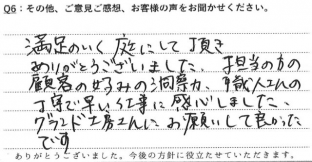 Q6：その他、ご意見ご感想、お客様の声をお聞かせください。
満足のいく庭にして頂き
ありがとうございました。担当の方の
顧客の好みの洞察力、職人さんの
丁寧で早い仕事に感心しました、
グランド工房さんにお願いして良かった
です
ありがとうございました。今後の方針に役立たせていただきます。